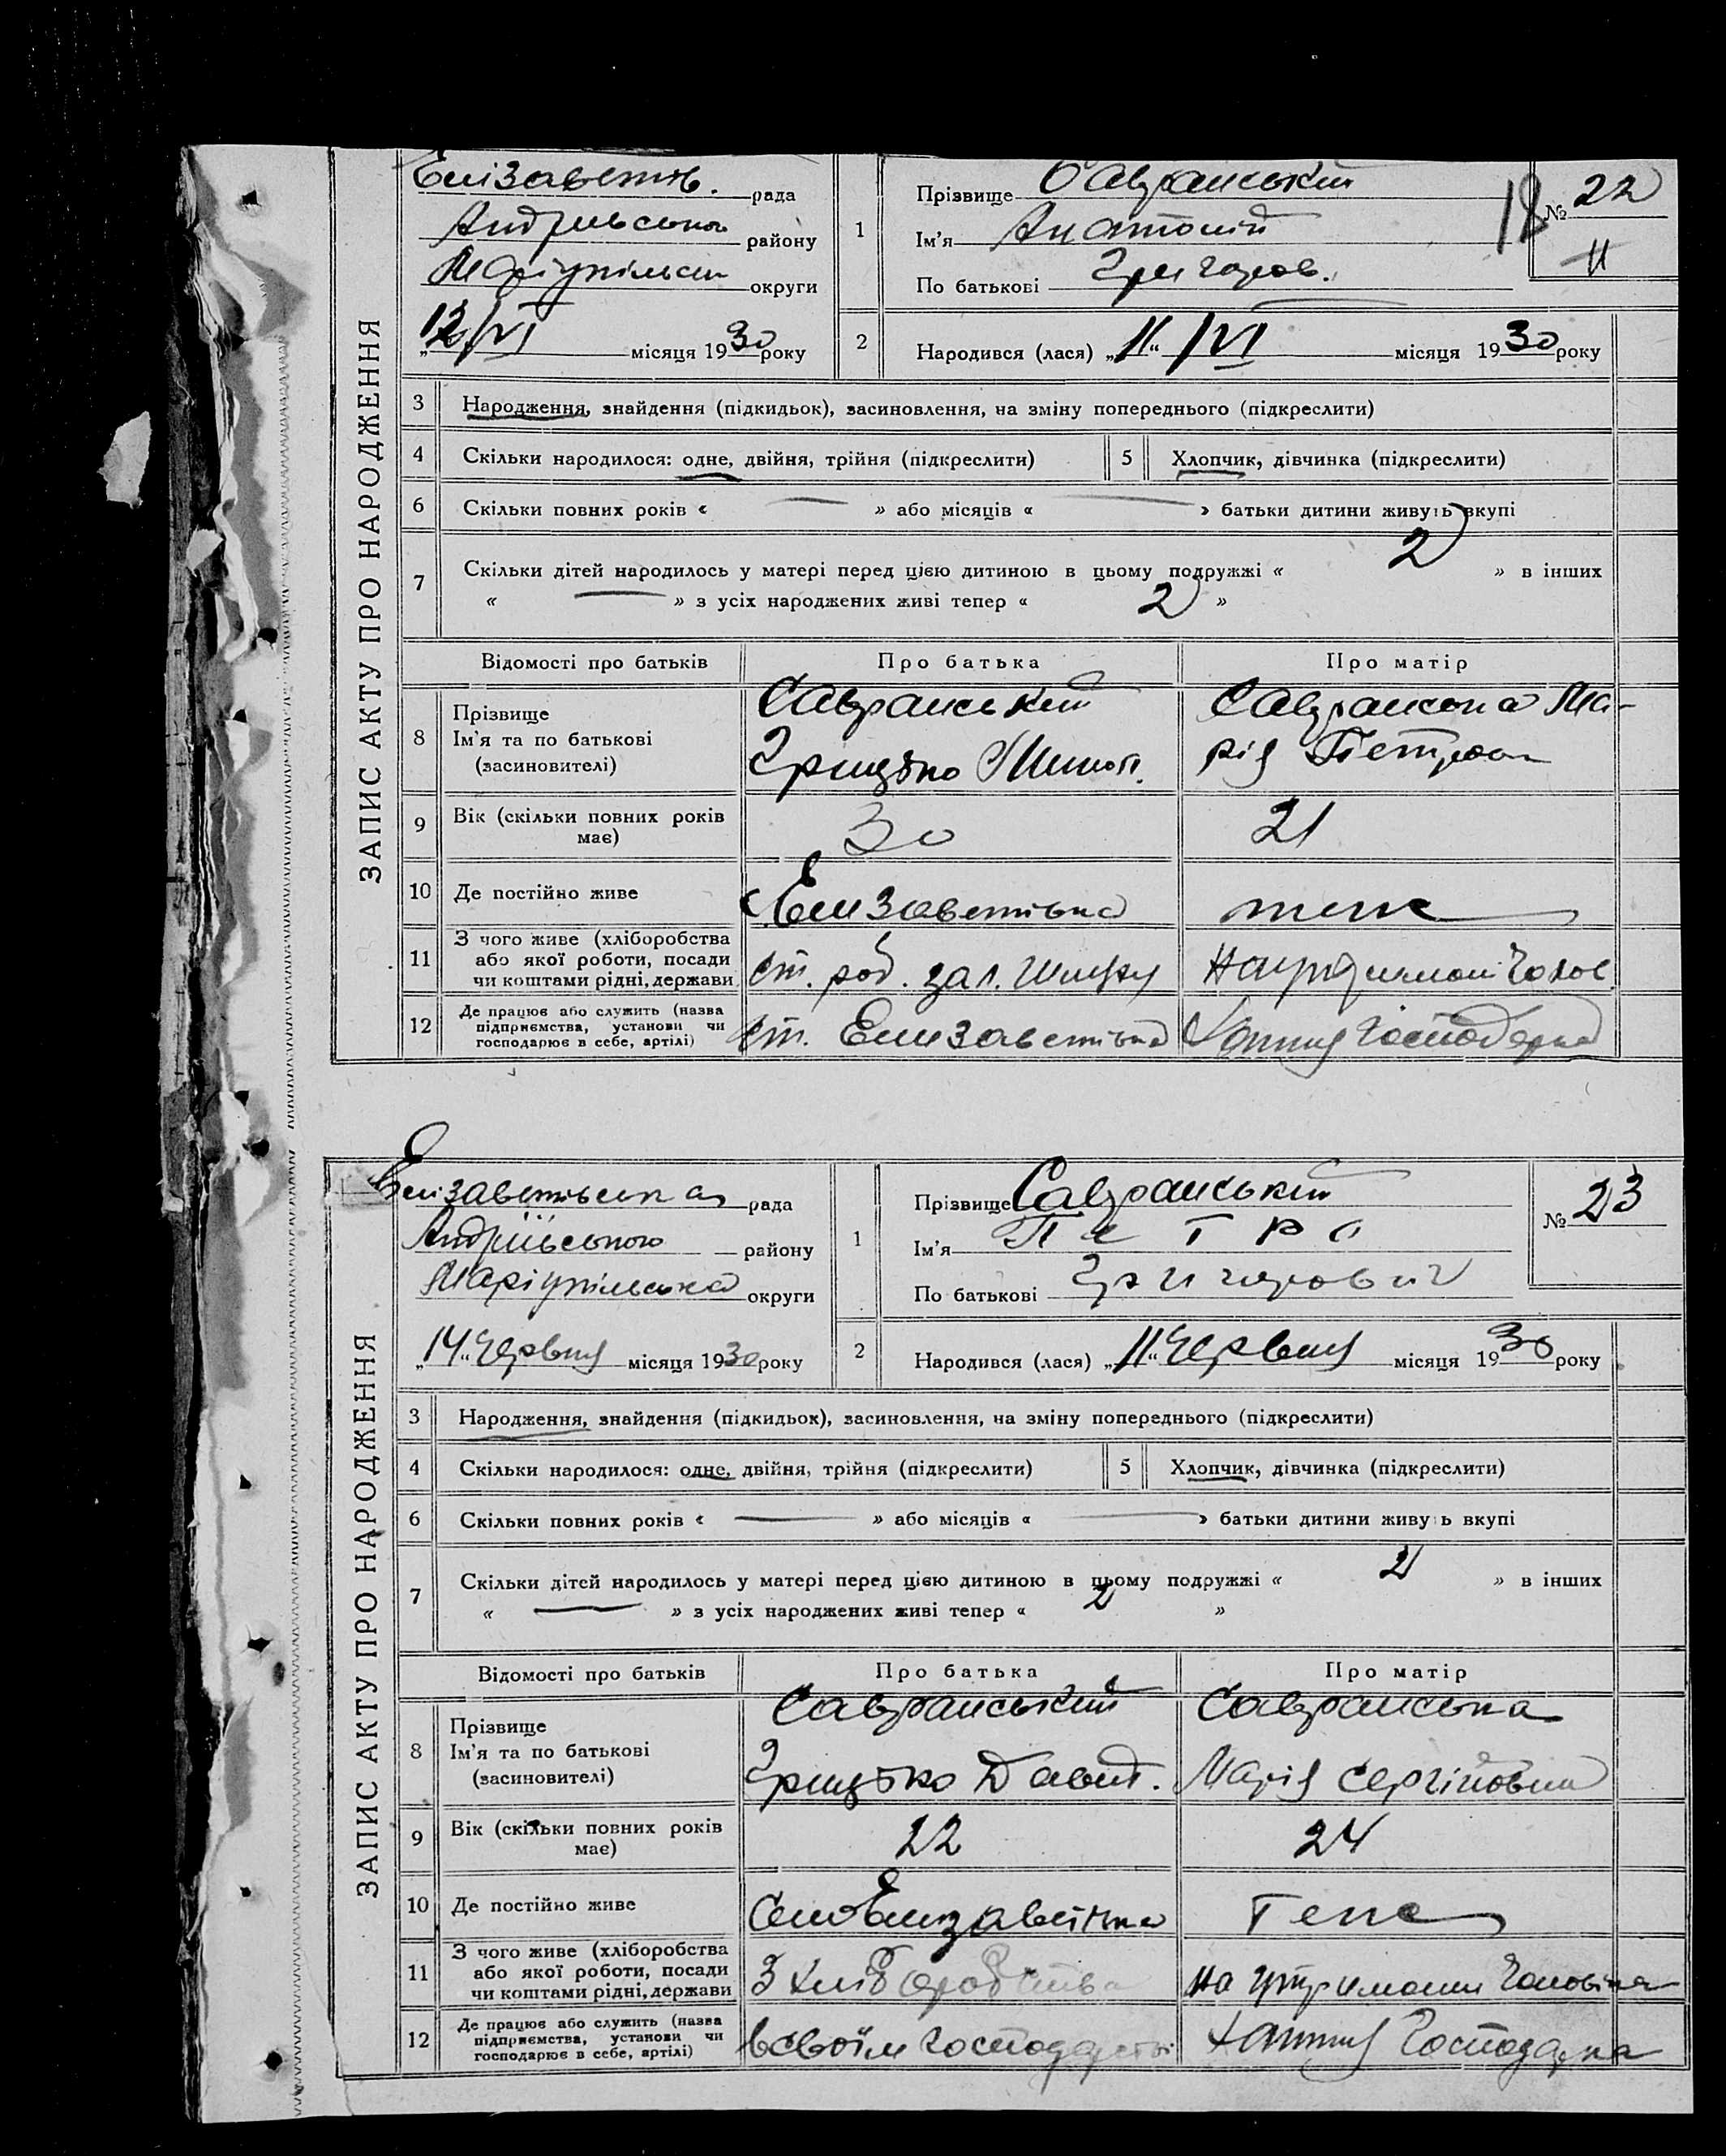 ЗАПИС АКТУ ПРО НАРОДЖЕННЯ
Єлізаветів. рада
Андріївського району
Маріупільськ округи
„12“/VI місяця 1930 року
1
Прізвище Савранський
Ім'я Анатолій
По батькові Григоров.
18
№ 22
11
2
Народився (лася) „11“ /VI місяця 1930 року
3 Народження, знайдення (підкидьок), засиновлення, на зміну попереднього (підкреслити)
4 Скільки народилося: одне, двійня, трійня (підкреслити)
5 Хлопчик, дівчинка (підкреслити)
6 Скільки повних років « — » або місяців « — » батьки дитини живуть вкупі
7 Скільки дітей народилось у матері перед цією дитиною в цьому подружжі « 2 » в інших
« — » з усіх народжених живі тепер « 2 »
Відомості про батьків Про батька Про матір
8 Прізвище
Ім'я та по батькові
(засиновителі)
Савранський
Грицько
Савранська Ма-
рія Петровна
9 Вік (скільки повних років має) 30 21
10 Де постійно живе
с. Єлизаветівка
теж
11 З чого живе (хліборобства або якої роботи, посади чи коштами рідні, держави
ст. роб. зал.
На утриманні Чолов.
12 Де працює або служить (назва підприємства, установи чи господарює в себе, артілі)
ст. Єлизаветівка
Хатня господарка
ЗАПИС АКТУ ПРО НАРОДЖЕННЯ
Єлізаветівська рада
Андріївського району
Маріупільська округи
„14“ Червня місяця 1930 року
1
Прізвище Савранський
Ім'я Петро
По батькові Григорович
№ 23
2
Народився (лася) „11“ Червня місяця 1930 року
3 Народження, знайдення (підкидьок), засиновлення, на зміну попереднього (підкреслити)
4 Скільки народилося: одне, двійня, трійня (підкреслити)
5 Хлопчик, дівчинка (підкреслити)
6 Скільки повних років « — » або місяців « — » батьки дитини живуть вкупі
7 Скільки дітей народилось у матері перед цією дитиною в цьому подружжі « 2 » в інших
« — » з усіх народжених живі тепер « 2 »
Відомості про батьків Про батька Про матір
8 Прізвище
Ім'я та по батькові
(засиновителі)
Савранський
Грицько Давид.
Савранська
Марія Сергіївна
9 Вік (скільки повних років має) 22 24
10 Де постійно живе
Село Єлизаветівка
Теж
11 З чого живе (хліборобства або якої роботи, посади чи коштами рідні, держави
З хліборобства
на утриманні Чоловіка
12 Де працює або служить (назва підприємства, установи чи господарює в себе, артілі)
в своїм господарстві
Хатня Господарка